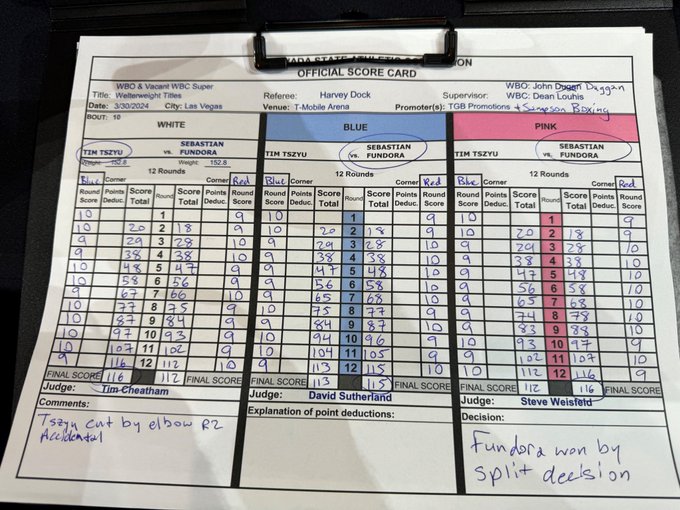 ADA STATE ATHLETIC CO ION
OFFICIAL SCORE CARD
WBO & Vacant WBC Super
Title: Welterweight Titles
Referee: Harvey Dock
WBO: John Dugen Duggan
Supervisor: WBC: Dean Louhis
Date: 3/30/2024 City: Las Vegas Venue: T-Mobile Arena Promoter(s): TGB Promotions + Simpson Boxing
BOUT: 10
WHITE BLUE PINK
TIM TSZYU vs. SEBASTIAN FUNDORA
TIM TSZYU vs. SEBASTIAN FUNDORA
TIM TSZYU vs. SEBASTIAN FUNDORA
Weight: 152.8 Weight: 152.8
12 Rounds 12 Rounds 12 Rounds
Blue Corner Corner Red Blue Corner Corner Red Blue Corner Corner Red
Round Score Points Deduc. Score Total Round Score Total Points Deduc. Round Score Round Score Points Deduc. Score Total Round Score Total Points Deduc. Round Score Round Score Points Deduc. Score Total Round Score Total Points Deduc. Round Score
10 1 9 10 1 9 10 1 9
10 20 2 18 9 10 20 2 18 9 10 20 2 18 9
9 29 3 28 10 9 29 3 28 10 9 29 3 28 10
9 38 4 38 10 9 38 4 38 10 9 38 4 38 10
10 48 5 47 9 9 47 5 48 10 9 47 5 48 10
10 58 6 56 9 9 56 6 58 10 9 56 6 58 10
9 67 7 66 10 9 65 7 68 10 9 65 7 68 10
10 77 8 75 9 10 75 8 77 9 9 74 8 78 10
10 87 9 84 9 9 84 9 87 10 9 83 9 88 10
10 97 10 93 9 10 94 10 96 9 10 93 10 97 9
10 107 11 102 9 10 104 11 105 9 9 102 11 107 10
9 116 12 112 10 9 113 12 115 10 10 112 12 116 9
FINAL SCORE 116 112 FINAL SCORE 113 115 FINAL SCORE 112 116 FINAL SCORE
Judge: Tim Cheatham
Judge: David Sutherland
Judge: Steve Weisfeld
Comments:
Tszyu cut by elbow R2
Accidental
Explanation of point deductions:
Decision:
Fundora won by
split decision